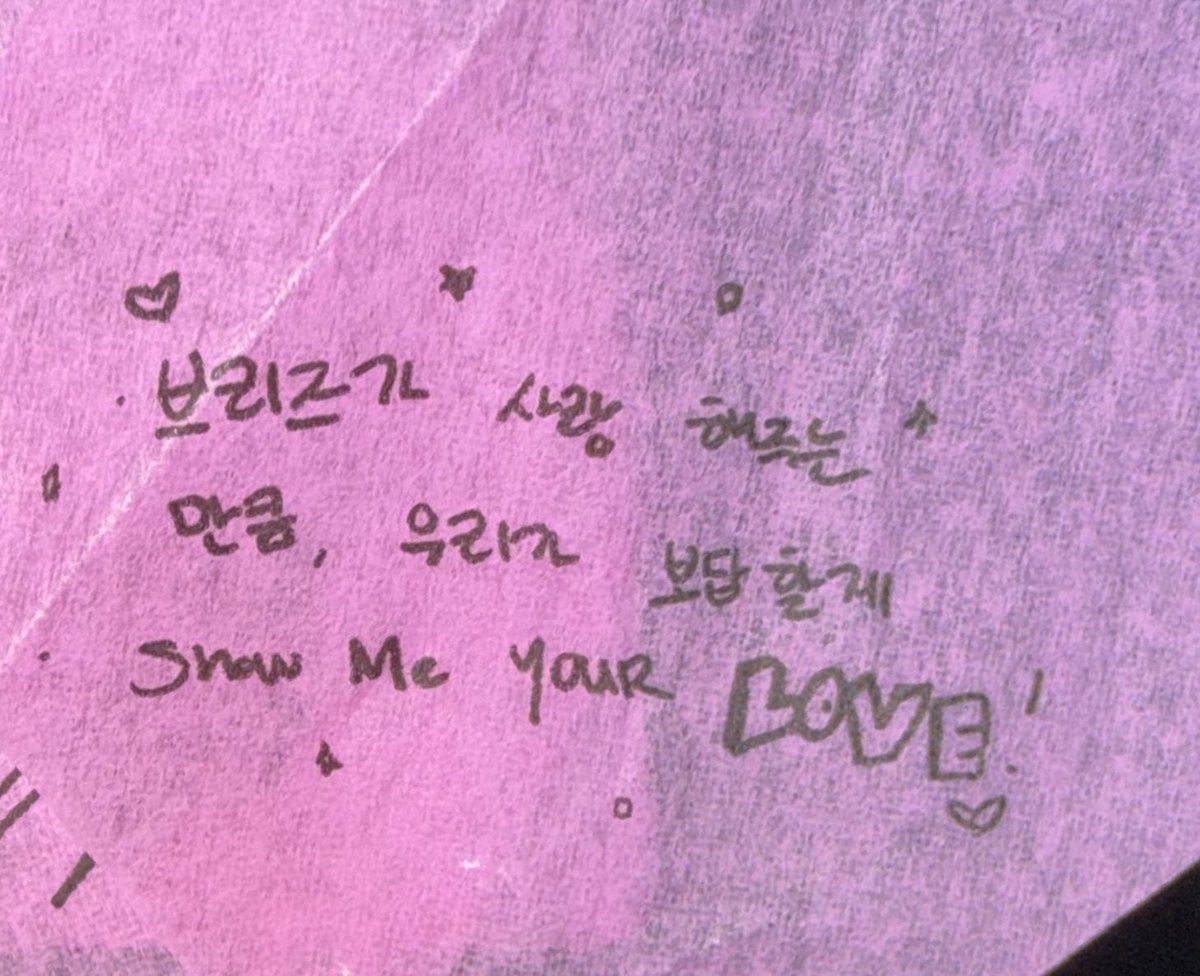 브리즈가 사랑 해주는
만큼, 우리가 보답 할게
Show Me YOUR LOVE!